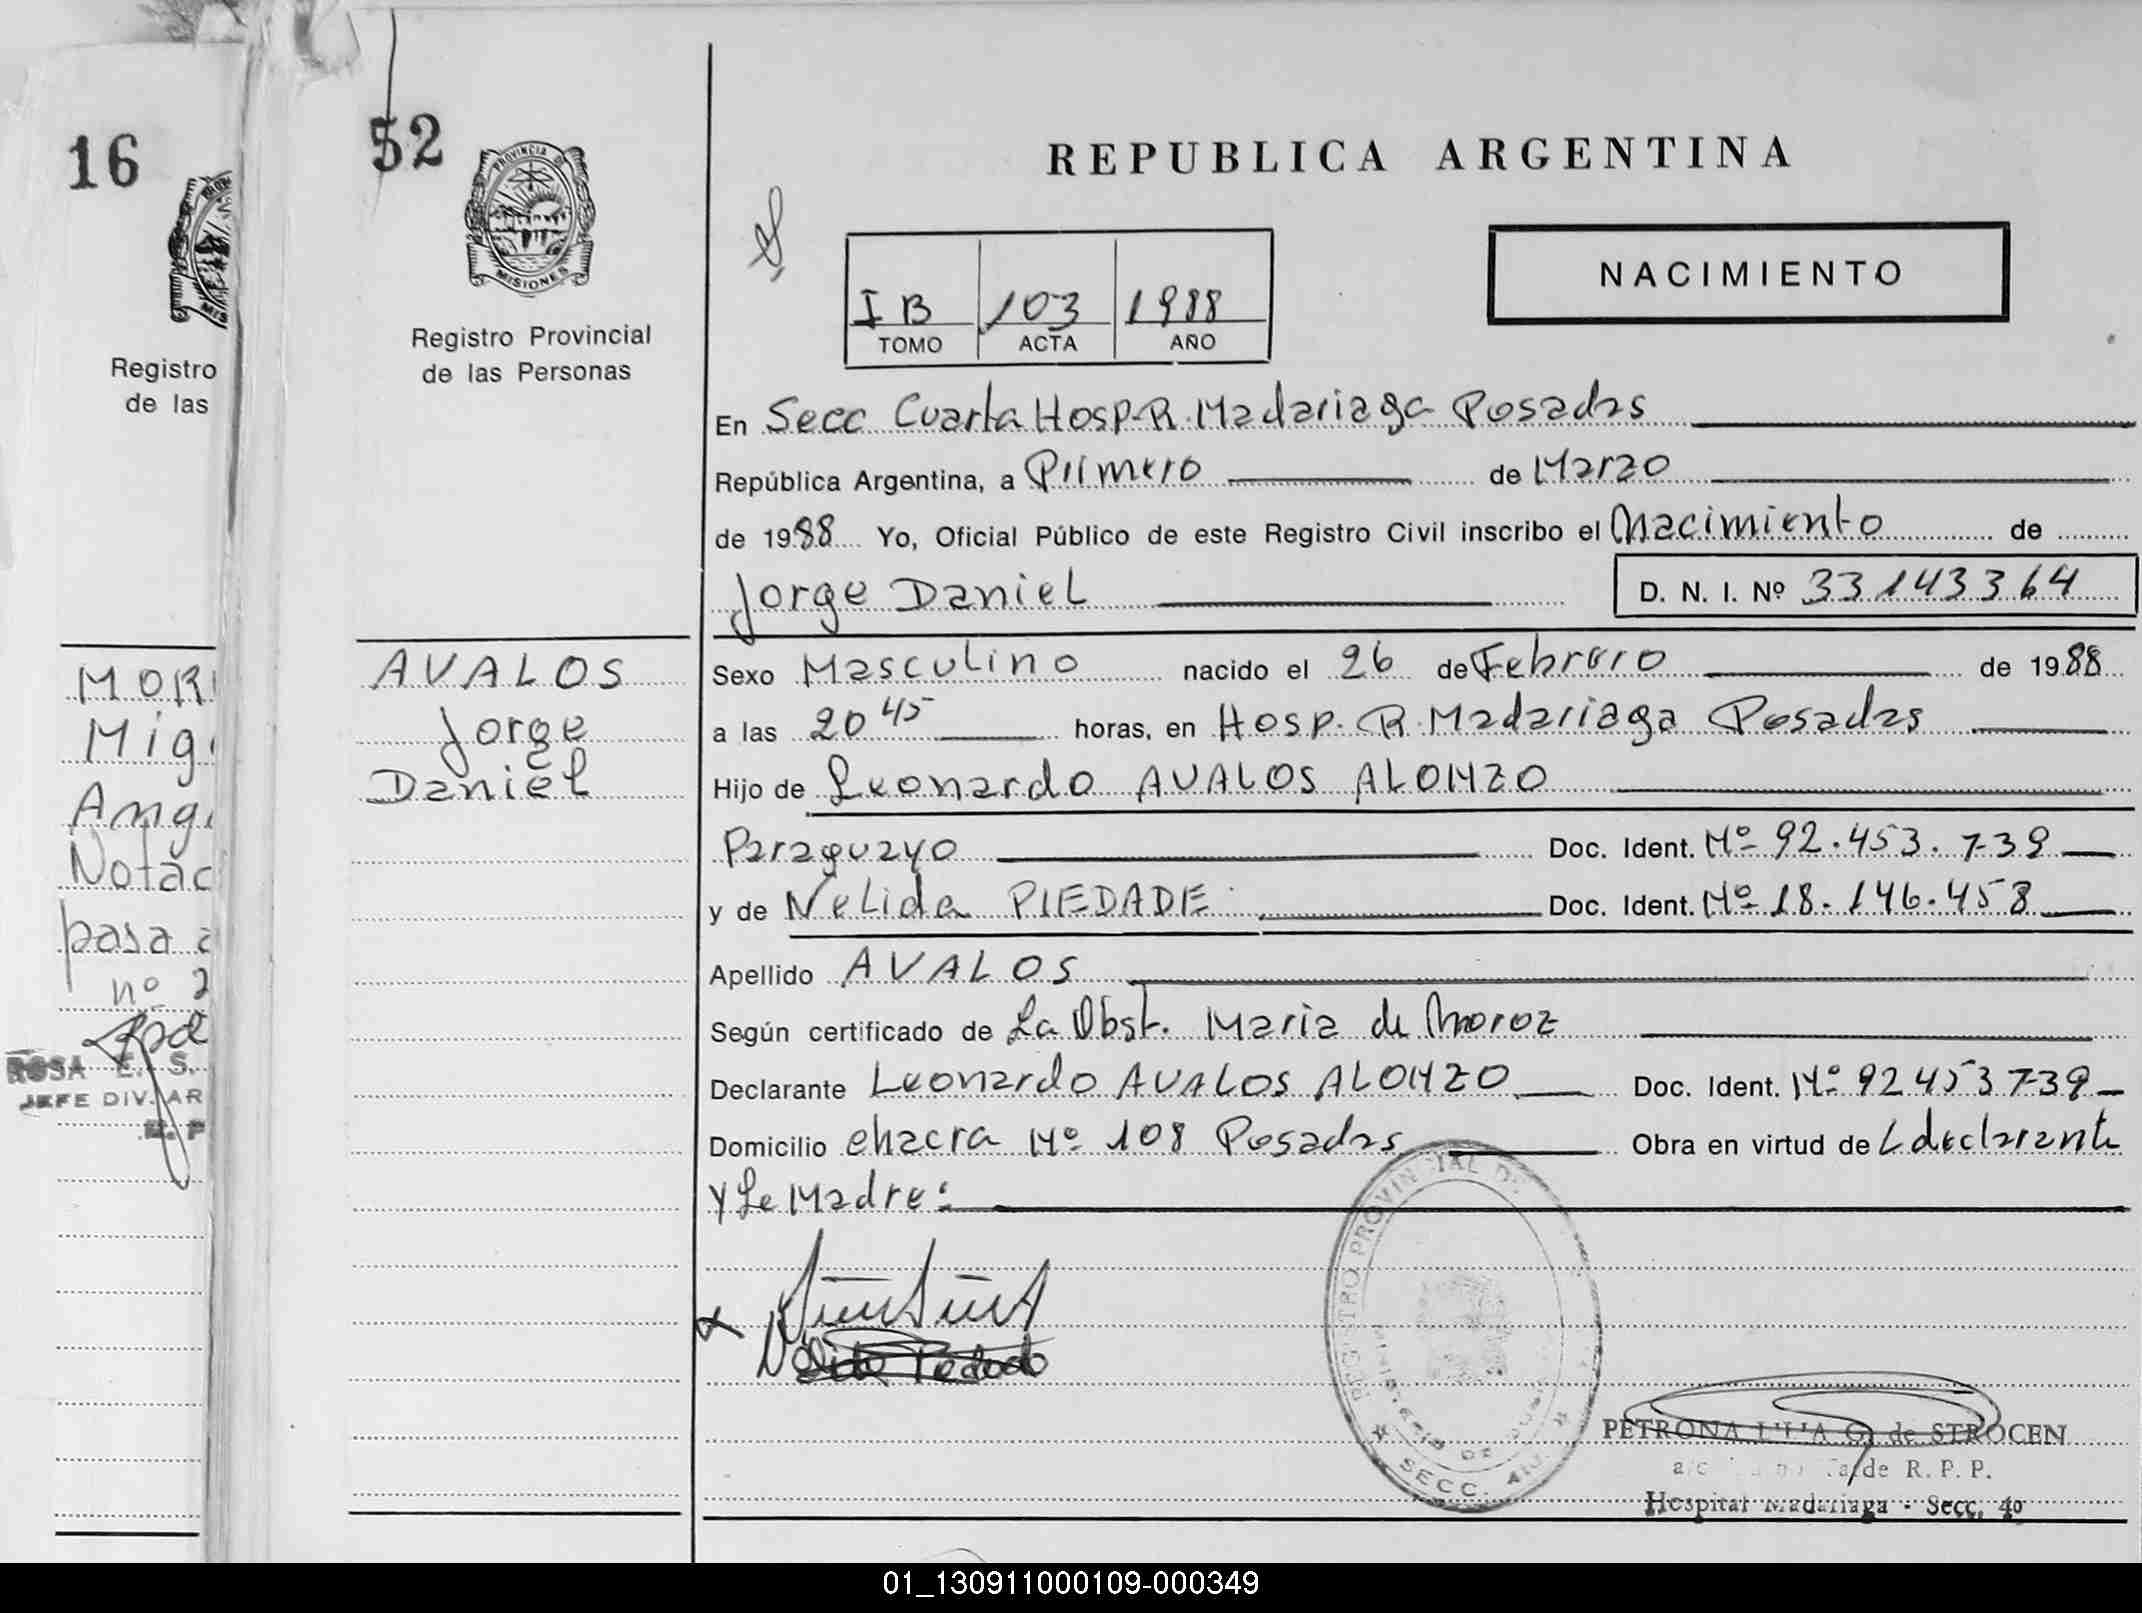 16
Registro
de las
MOR
Mig
Ang
Notac
pasa a
nº 2
ROSA E. S.
JEFE DIV. AR
52
PROVINCIA DE
MISIONES
Registro Provincial
de las Personas
AVALOS
Jorge
Daniel
REPUBLICA ARGENTINA
NACIMIENTO
I B 103 1988
TOMO ACTA AÑO
En Secc Cuarta Hosp. R. Madariaga Posadas
República Argentina, a Primero de Marzo
de 1988 Yo, Oficial Público de este Registro Civil inscribo el Nacimiento de
Jorge Daniel D. N. I. Nº 33143364
Sexo Masculino nacido el 26 de Febrero de 1988
a las 20 45 horas, en Hosp. R. Madariaga Posadas
Hijo de Leonardo AVALOS ALONZO
Paraguayo Doc. Ident. Nº 92.453.739
y de Nelida PIEDADE Doc. Ident. Nº 18.146.458
Apellido AVALOS
Según certificado de La Obst. Maria de Moroz
Declarante Leonardo AVALOS ALONZO Doc. Ident. Nº 92453739
Domicilio chacra Nº 108 Posadas Obra en virtud de L declarante
y La Madre:
REGISTRO PROVINCIAL DE
MINISTERIO DE
SECC.
PETRONA de STROCEN
de R. P. P.
Hospital Madariaga - Secc. 4º
01_130911000109-000349